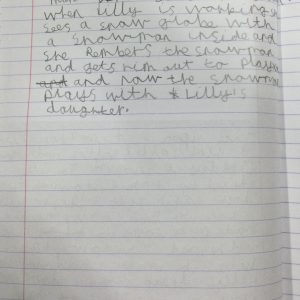 when Lilly is working she
sees a snow globe with
a snowman inside and
she Rembers the snowman
and gets him out to play
and and now the snowman
plays with Lilly's
daughter.